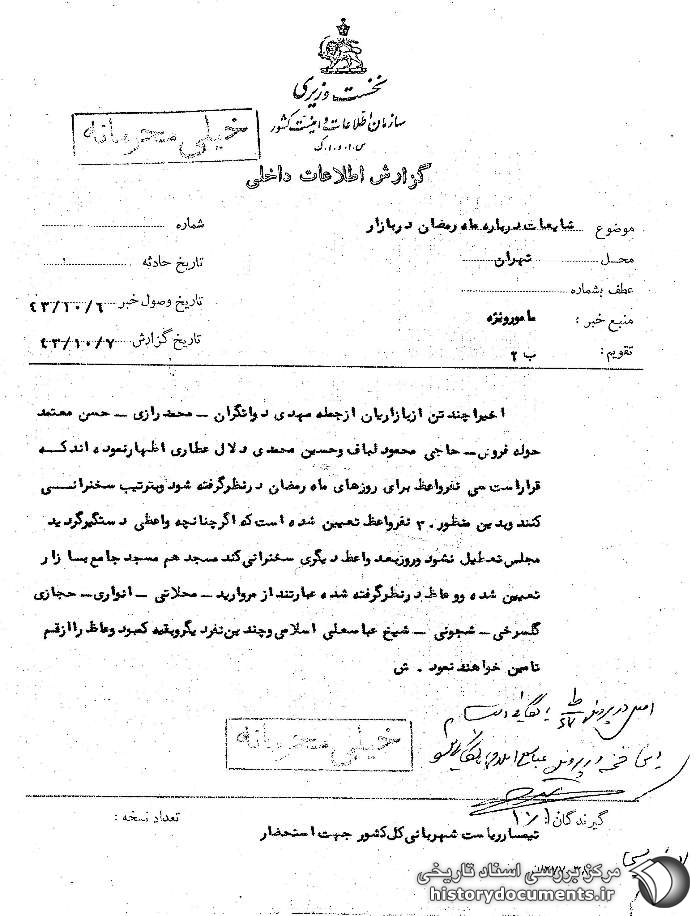 نخست وزیری
سازمان اطلاعات و امنیت کشور
س.ا.و.ا.ک
خیلی محرمانه
گزارش اطلاعات داخلی
موضوع شایعات درباره ماه رمضان در بازار
شماره
محل تهران
تاریخ حادثه
عطف بشماره
تاریخ وصول خبر ٤٣/١٠/٦
منبع خبر : مامور ویژه
تاریخ گزارش ٤٣/١٠/٧
تقویم : ب ٢
اخیرا چند تن از بازاریان از جمله مهدی دوانگران – محمد رازی – حسن معتمد
حوله فروش – حاجی محمود لباف وحسین محمدی دلال عطاری اظهار نموده اند که
قرار است سی نفر واعظ برای روزهای ماه رمضان در نظر گرفته شود و بترتیب سخنرانی
کنند و بدین منظور ٣٠ نفر واعظ تعیین شده است که اگر چنانچه واعظی دستگیر گردید
مجلس تعطیل نشود و روز بعد واعظ دیگری سخنرانی کند مسجد هم مسجد جامع بازار
تعیین شده و وعاظ در نظر گرفته شده عبارتند از مروارید – محلاتی – انواری – حجازی
گلسرخی – شجونی – شیخ عباسعلی اسلامی و چندین نفر دیگر و بقیه کمبود وعاظ را از قم
تامین خواهند نمود . ش
اصل در پرونده
خیلی محرمانه
گیرندگان
تعداد نسخه :
تیمسار ریاست شهربانی کل کشور جهت استحضار
مرکز بررسی اسناد تاریخی
historydocuments.ir